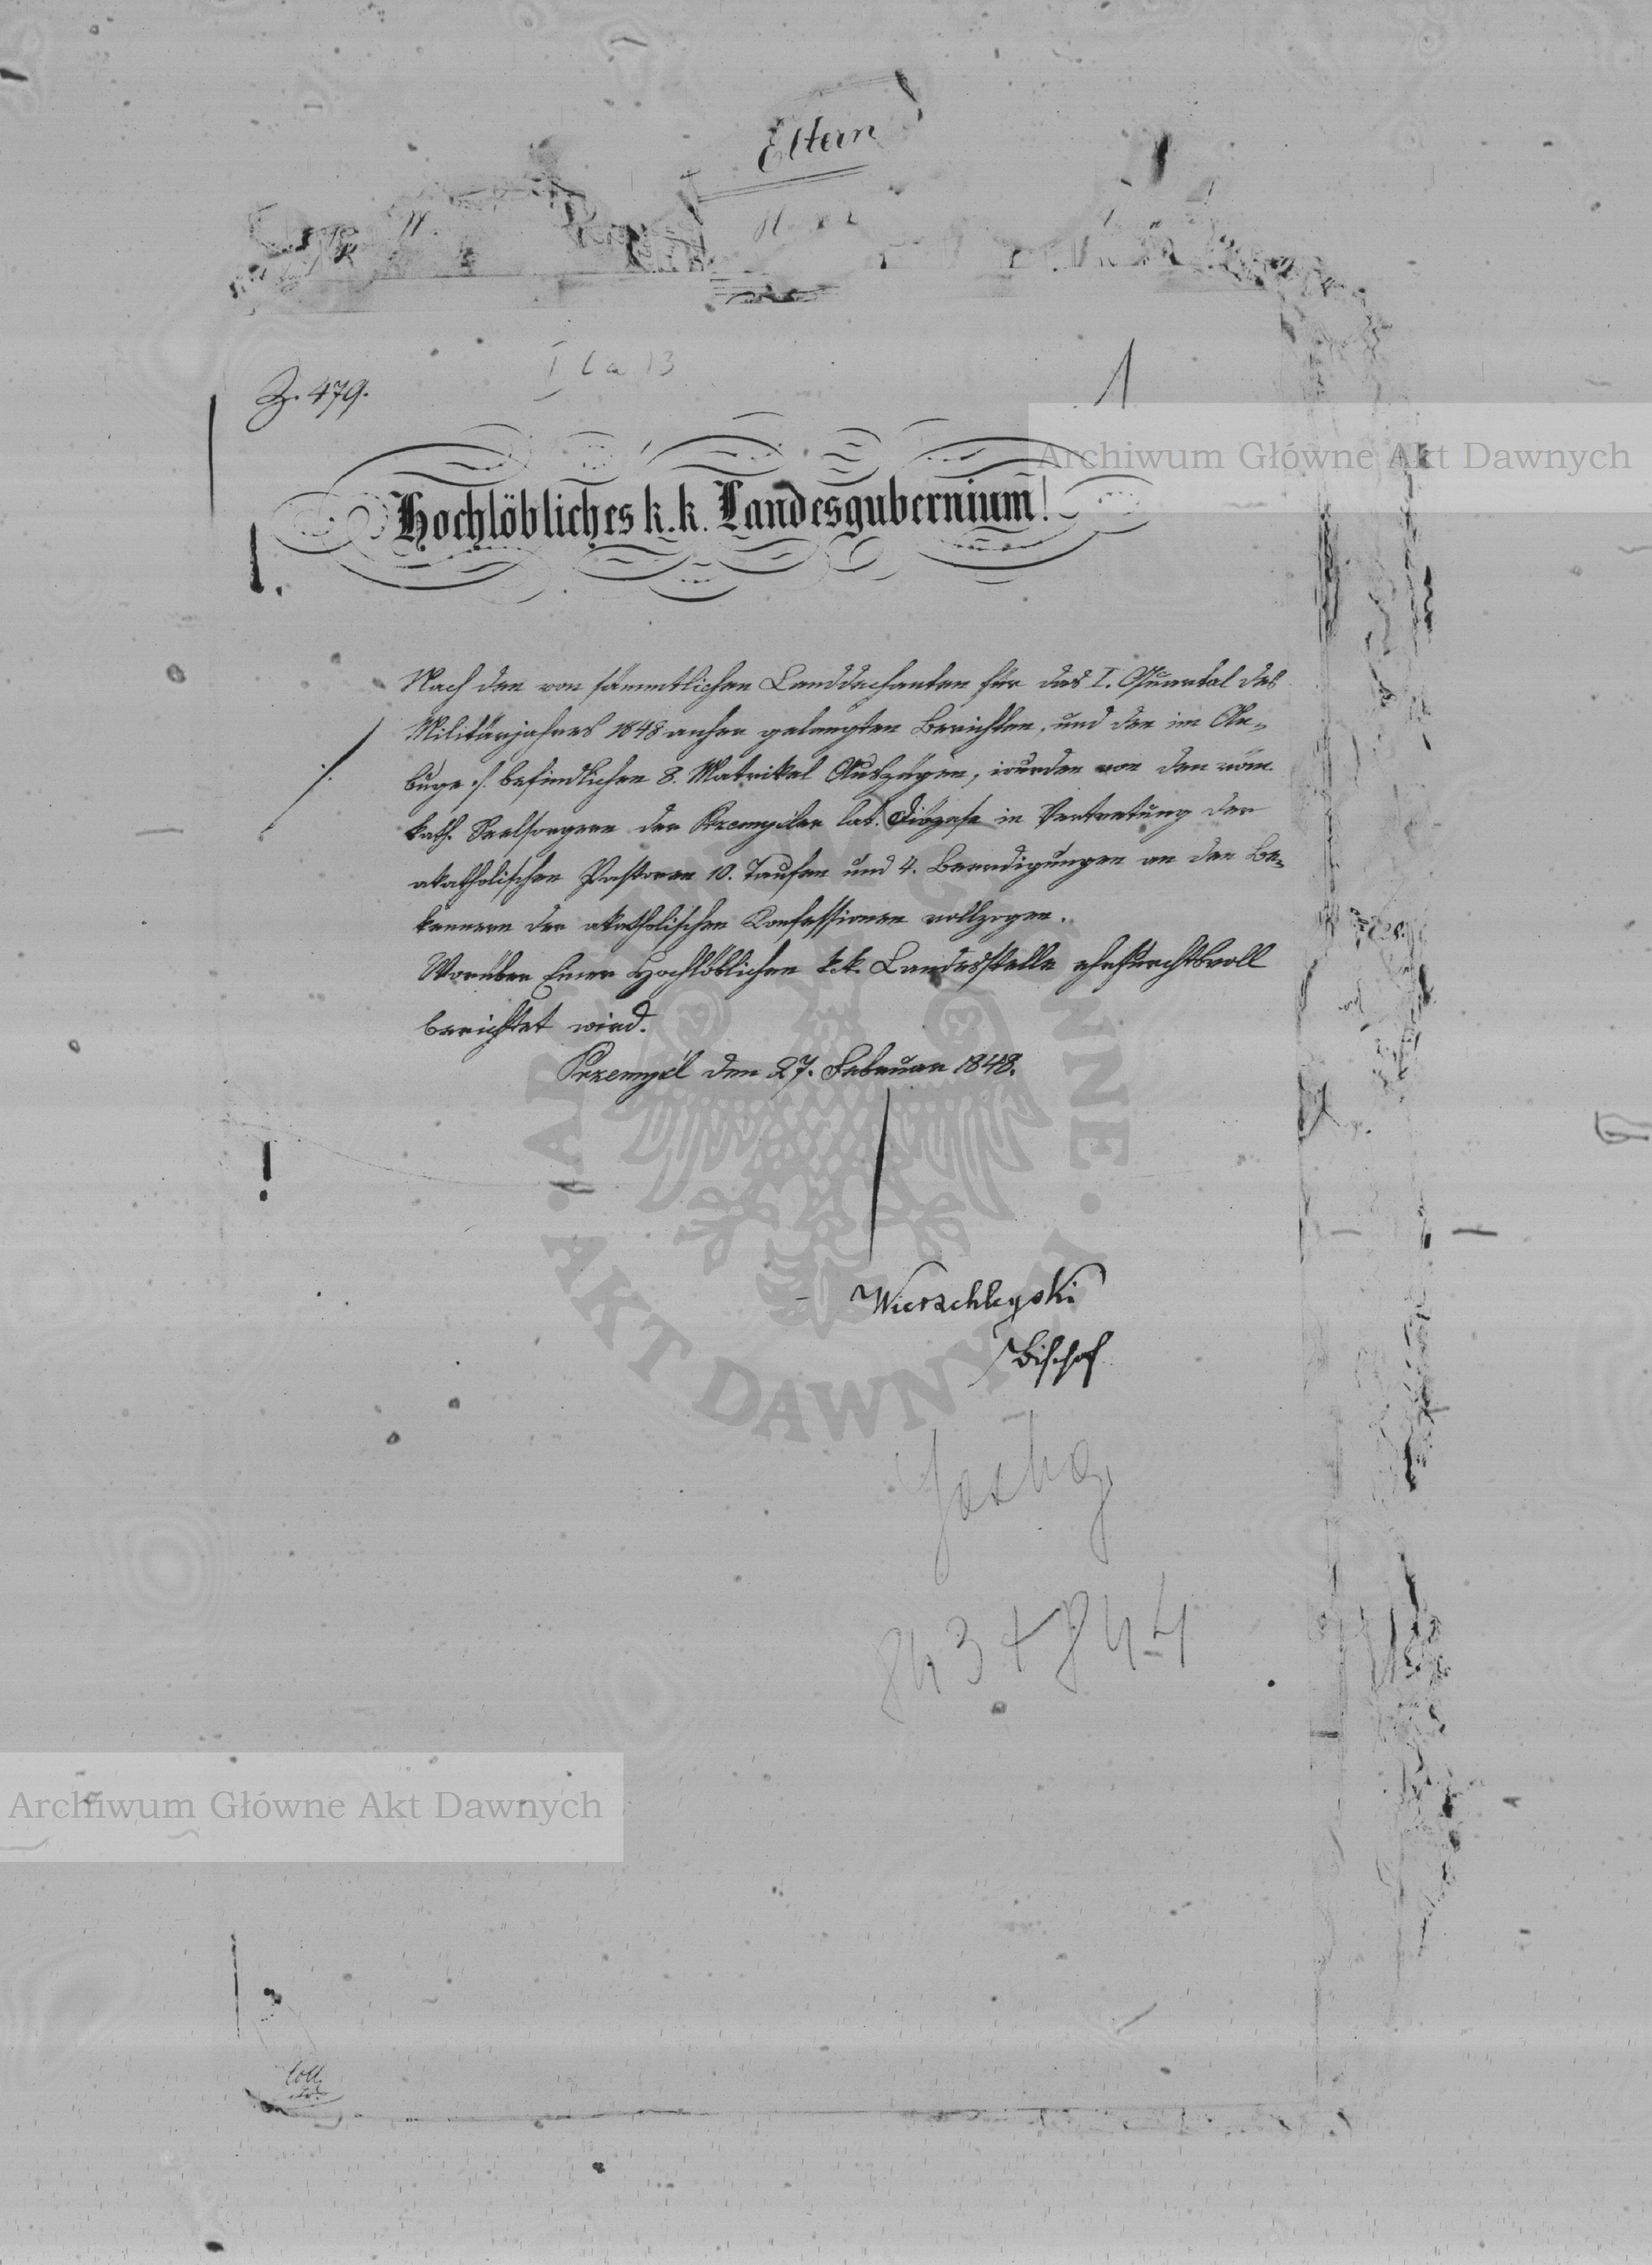 Eltern
Z. 479.
1
Archiwum Główne Akt Dawnych
Hochlöbliches k. k. Landesgubernium!
Nach den von sämmtlichen Landdechanten für das I. Quartal des
Militärjahres 1848 anher gelangten Berichten, und den im An-
buge ·/. befindlichen 8. Matrikel Auszügen, wurden von den röm.
kath. Seelsorgern der Przemysler lat. Diözese in Vertretung der
akatholischen Pastoren 10. Taufen und 4. Beerdigungen an den Be-
kennern der akatholischen Konfessionen vollzogen.
Worüber Einer Hochlöblichen k.k. Landesstelle ehrfurchtsvoll
berichtet wird.
Przemyśl den 27. Februar 1848.
Wierzchleyski
Bischof
843 + 844
Archiwum Główne Akt Dawnych
ARCHIWUM GŁÓWNE · AKT DAWNYCH ·